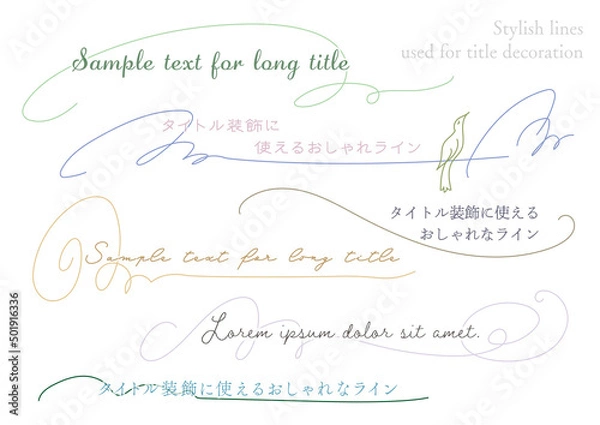 Stylish lines
used for title decoration
Sample text for long title
タイトル装飾に
使えるおしゃれライン
タイトル装飾に使える
おしゃれなライン
Sample text for long title
Lorem ipsum dolor sit amet.
タイトル装飾に使えるおしゃれなライン
Adobe Stock | #501916336